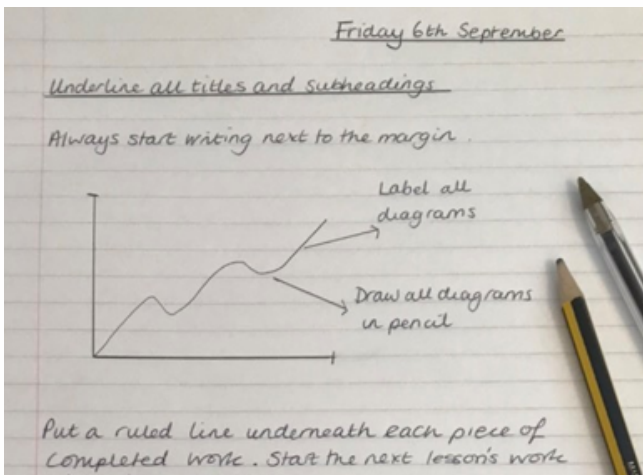 Friday 6th September
Underline all titles and subheadings
Always start writing next to the margin.
Label all
diagrams
Draw all diagrams
in pencil
Put a ruled line underneath each piece of
completed work. Start the next lesson's work